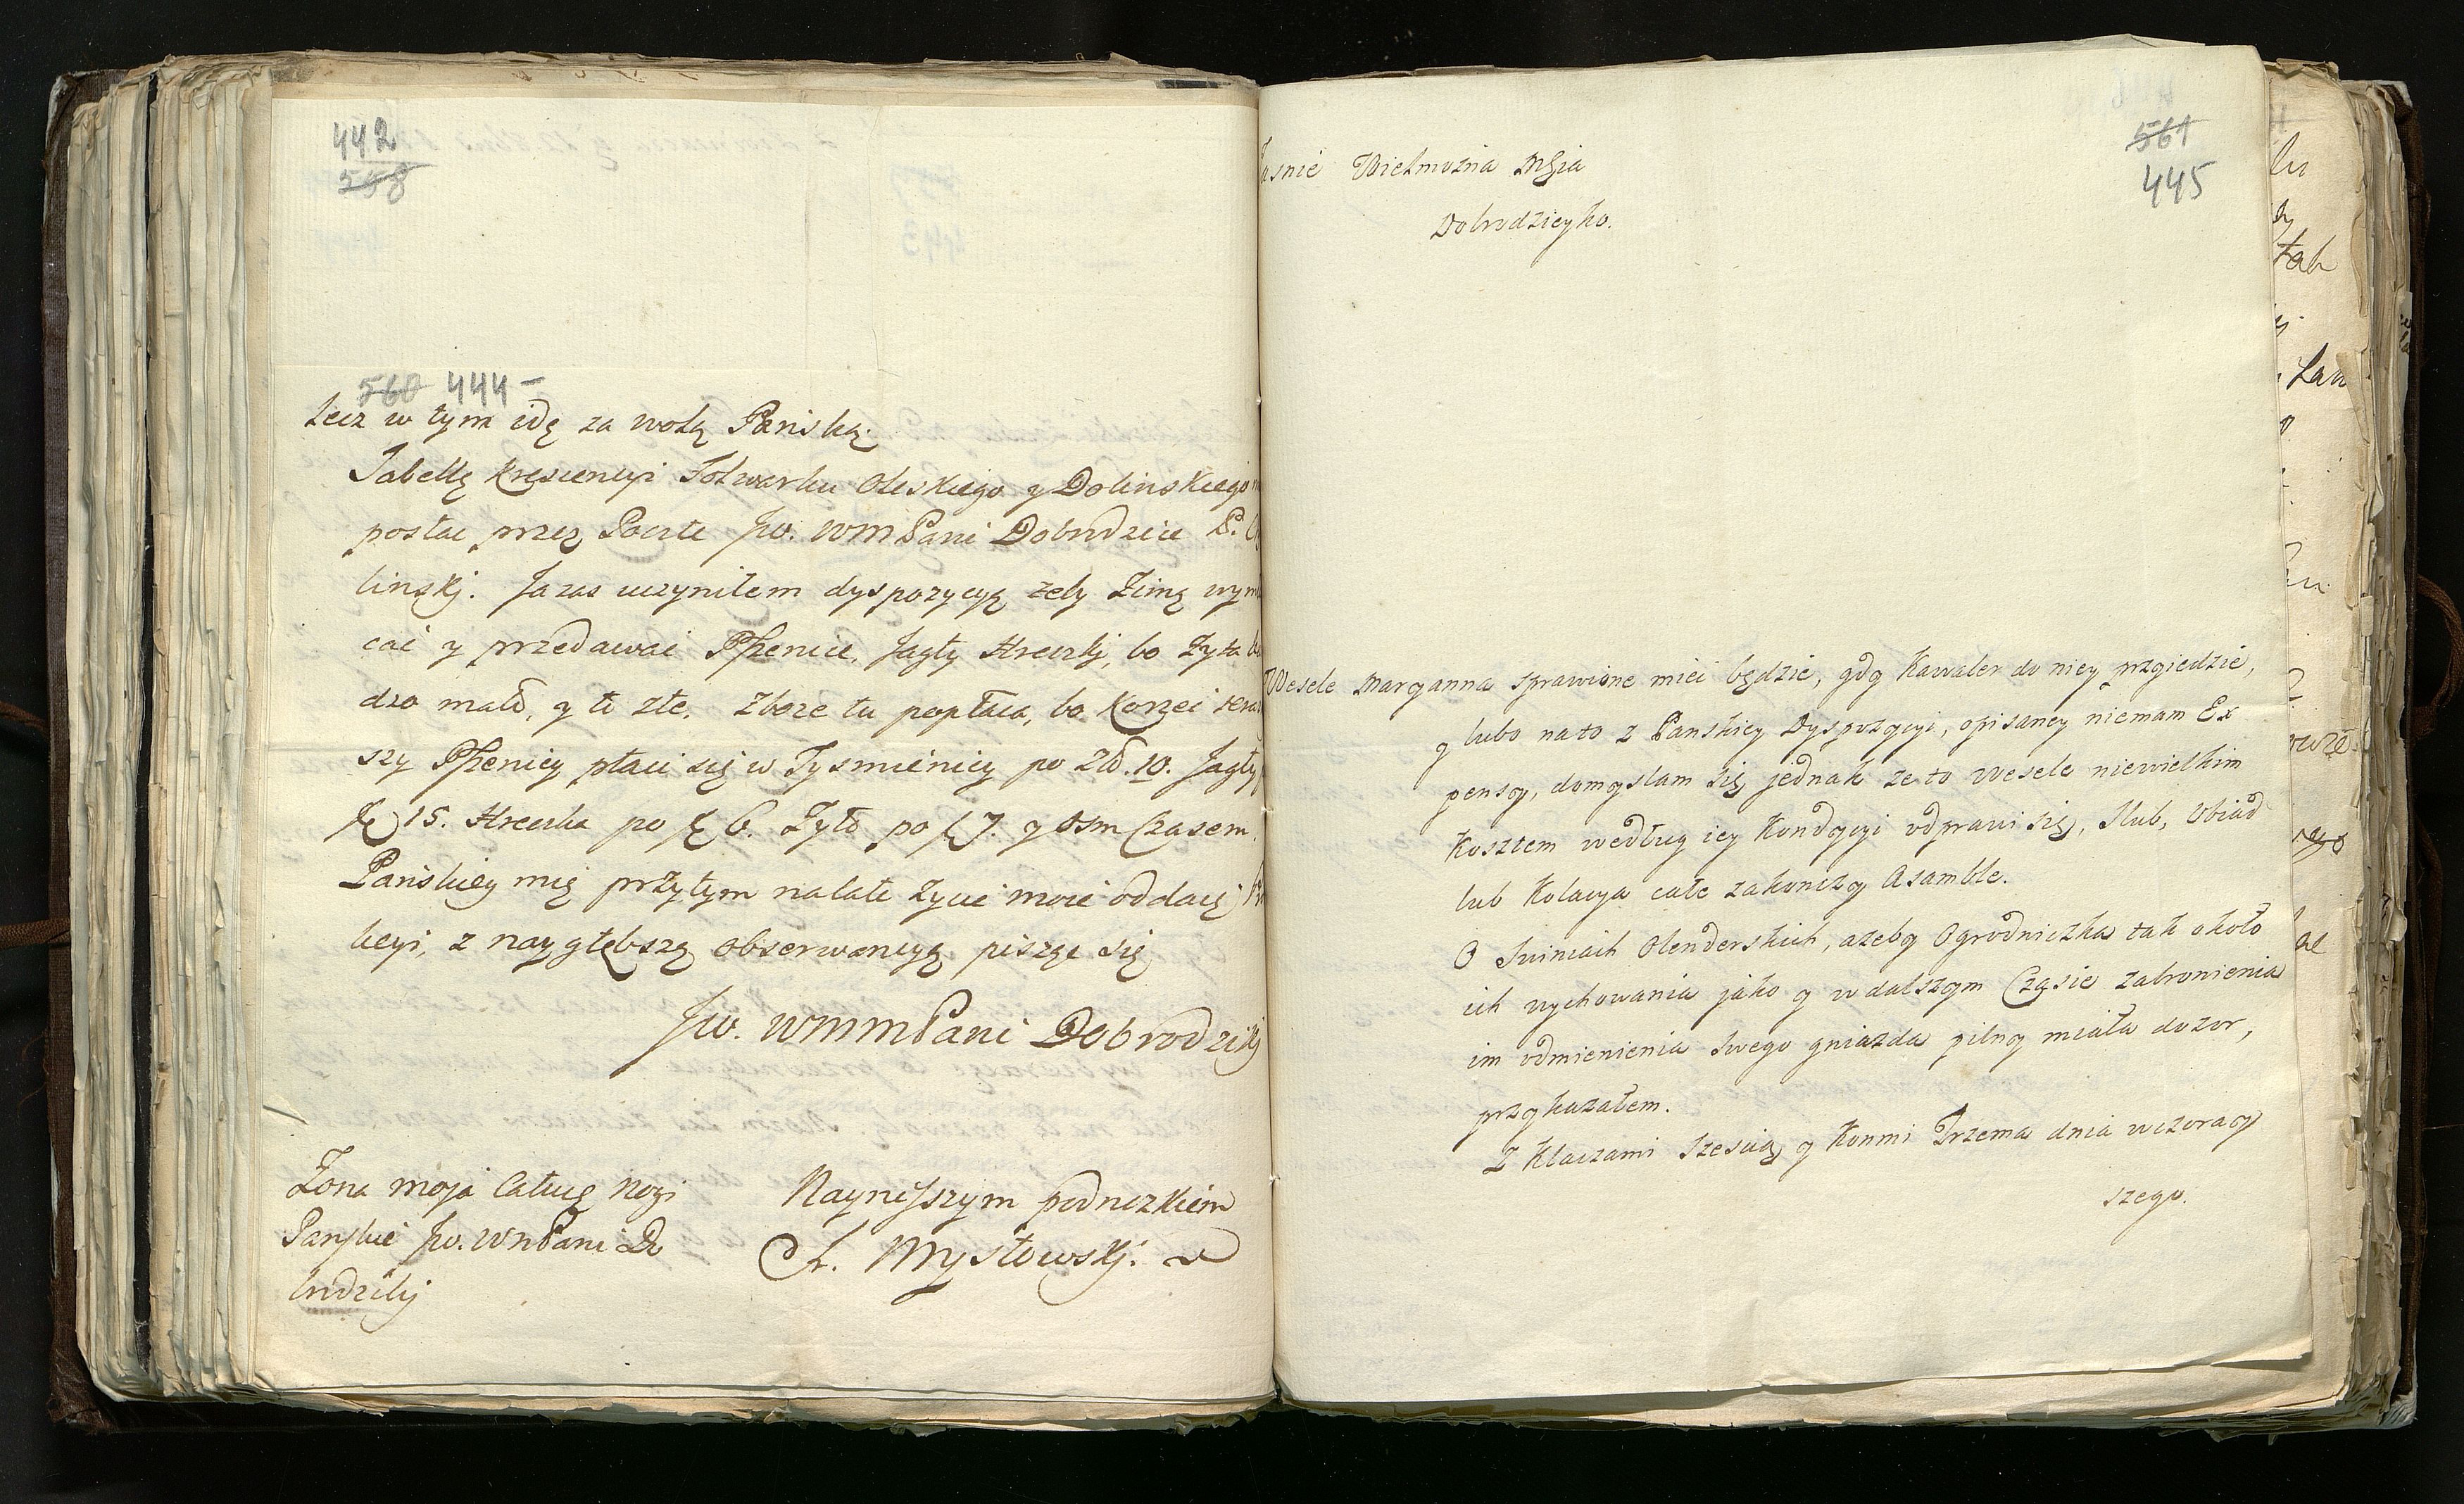 442
558
560 444 –
lecz w tym idę za wolą Pańską.
Tabellę Krescencyi Folwarku Oleskiego y Dolinskiego
posłac przez Poczte Jw. WMPani Dobrodzice P.
linskj. Ja zas uczyniłem dyspozycyę zeby Zimą wym
cać y przedawać Pszenice, Jagły Hreczkj, bo Zyta
dzo mało, y to złe. Zboze tu popłaca, bo Korzec
szy Pszenicy płaci się w Tysmienicy po Zło. 10. Jagły
15. Hreczka po 6. Zyto po 7. y osm Czasem.
Pańskiey mię przytym nalałe zycie moie oddaię
kcyi, z naygłębszą obserwancyą pisząc się
Jw. WMMPani Dobrodziki
Zona moja Całuię Nogi
Panskie Jw. WMPani Do
brodziki
Nayniższym podnozkiem
A. Mysłowskj.
561
445
asnie Wielmozna Mśia
Dobrodzieyko.
Wesele Maryanna sprawione mieć będzie, gdy Kawaler do niey przyiedzie,
y lubo na to z Panskiey Dyspozycyi, opisaney niemam Ex
pensy, domyslam się jednak ze to Wesele niewielkim
Kosztem według iey Kondycyi odprawi się, Slub, Obiad
lub Kolacya całe zakonczy Asamble.
O Swiniach Olenderskich, azeby Ogrodniczka tak około
ich wychowania jako y w dalszym Czasie zabronienia
im odmienienia swego gniazda pilny miała dozor,
przykazałem.
Z Klaczami Szescią y Konmi Trzema dnia wczoray
szego.